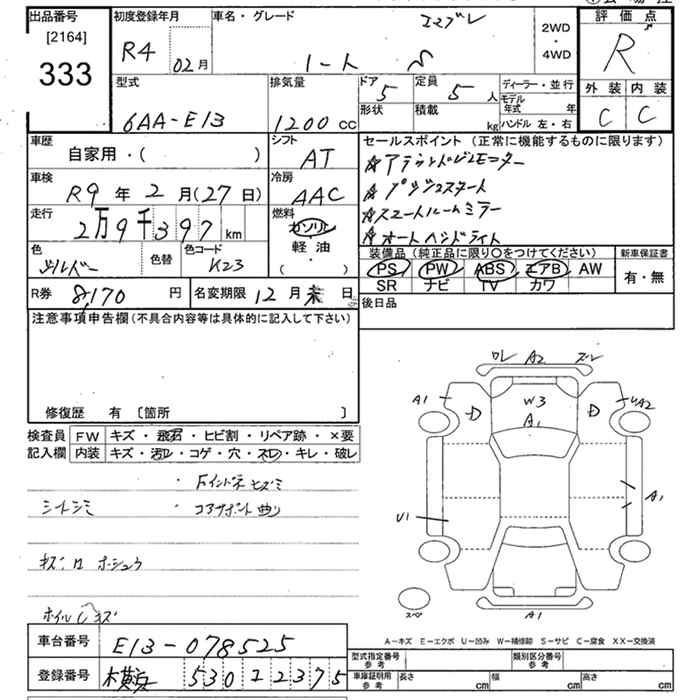 出品番号
[2164]
333
初度登録年月
R4 02月
車名・グレード
ノート S
2WD
・
4WD
評価点
R
外装 内装
C C
型式
6AA-E13
排気量
1200 cc
ドア 5
形状
定員 5 人
積載 kg
ディーラー・並行
モデル年式 年
ハンドル 左・右
車歴
自家用・( )
シフト
AT
車検
R9年2月(27日)
冷房
AAC
走行
2万9千397km
燃料
ガソリン
軽油
・
( )
色
シルバー
色替
色コード
K23
R券 8,170 円
名変期限 12月末日
セールスポイント (正常に機能するものに限ります)
☆アラウンドビューモニター
☆プッシュスタート
☆スマートルームミラー
☆オートヘッドライト
装備品 (純正品に限り○をつけてください)
PS PW ABS エアB AW
SR ナビ TV カワ
新車保証書
有・無
後日品
注意事項申告欄(不具合内容等は具体的に記入して下さい)
修復歴 有 〔箇所 〕
検査員
記入欄
FW キズ・飛石・ヒビ割・リペア跡・×要
内装 キズ・汚レ・コゲ・穴・スレ・キレ・破レ
・Fインパネ ヒズミ
シートシミ
・コアサポート曲り
キズ・凹 ホシュウ
ホイルキズ
車台番号 E13-078525
登録番号 530 22375
A2
A1
W3
A1
D
D
A2
A1
U1
A1
スペ
A-キズ E-エクボ U-凹み W-補修跡 S-サビ C-腐食 XX-交換済
型式指定番号
参考
類別区分番号
参考
車庫証明用
参考
長さ cm
幅 cm
高さ cm